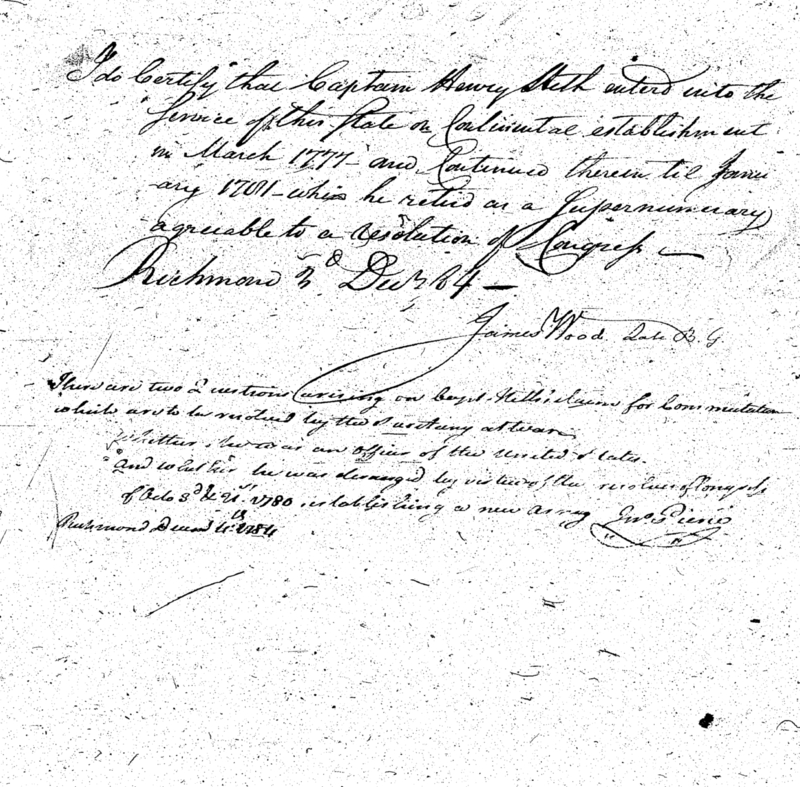 I do Certify that Captain Henry Heth enterd into the
Service of this State on Continental establishment
in March 1777 and Continued therein til Janu
ary 1781 he retired as a Supernumerary
agreeable to a resolution of Congress —
Richmond 3d Decr 84 —
James Wood Late B. G.
There are two Questions arising on Capt. Heth's claim for Commutation
which are to be resolved by the Secretary at war
Whether he was an officer of the United States.
And whether he was deranged by virtue of the resolves of Congress
of Octo 3d & 21st 1780 establishing a new Army Jno. Pierce
Richmond Decem 4th 1784